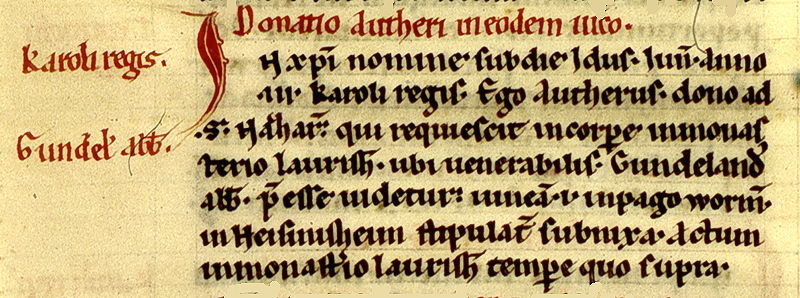 Donatio Autheri in eodem uico.
Karoli regis.
IN xp̄i nomine sub die Idus. Iun̄. anno
.III. karoli regis. Ego Autherus. dono ad
Gundel̄ abb̄.
.S. Naz̄har̄. qui requiescit in corp̄e in monas
terio laurish̄. ubi uenerabilis. Gundeland̄
abb̄. p̄esse uidetur. uineā .I. in pago worm̄.
in Heisinisheim stipulat̄ subnixa. Actum
in monast̄io laurish̄ temp̄e quo supra.